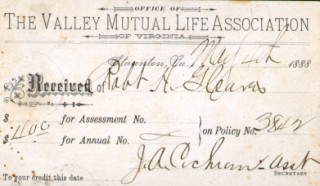 OFFICE OF
THE VALLEY MUTUAL LIFE ASSOCIATION
OF VIRGINIA.
Staunton, Va. May 4th 1888
Received Robt H. Gleaves
$4.00 for Assessment No.
for Annual No. on Policy No. 3842
J.A. Cochran - Asst
SECRETARY
To your credit this date